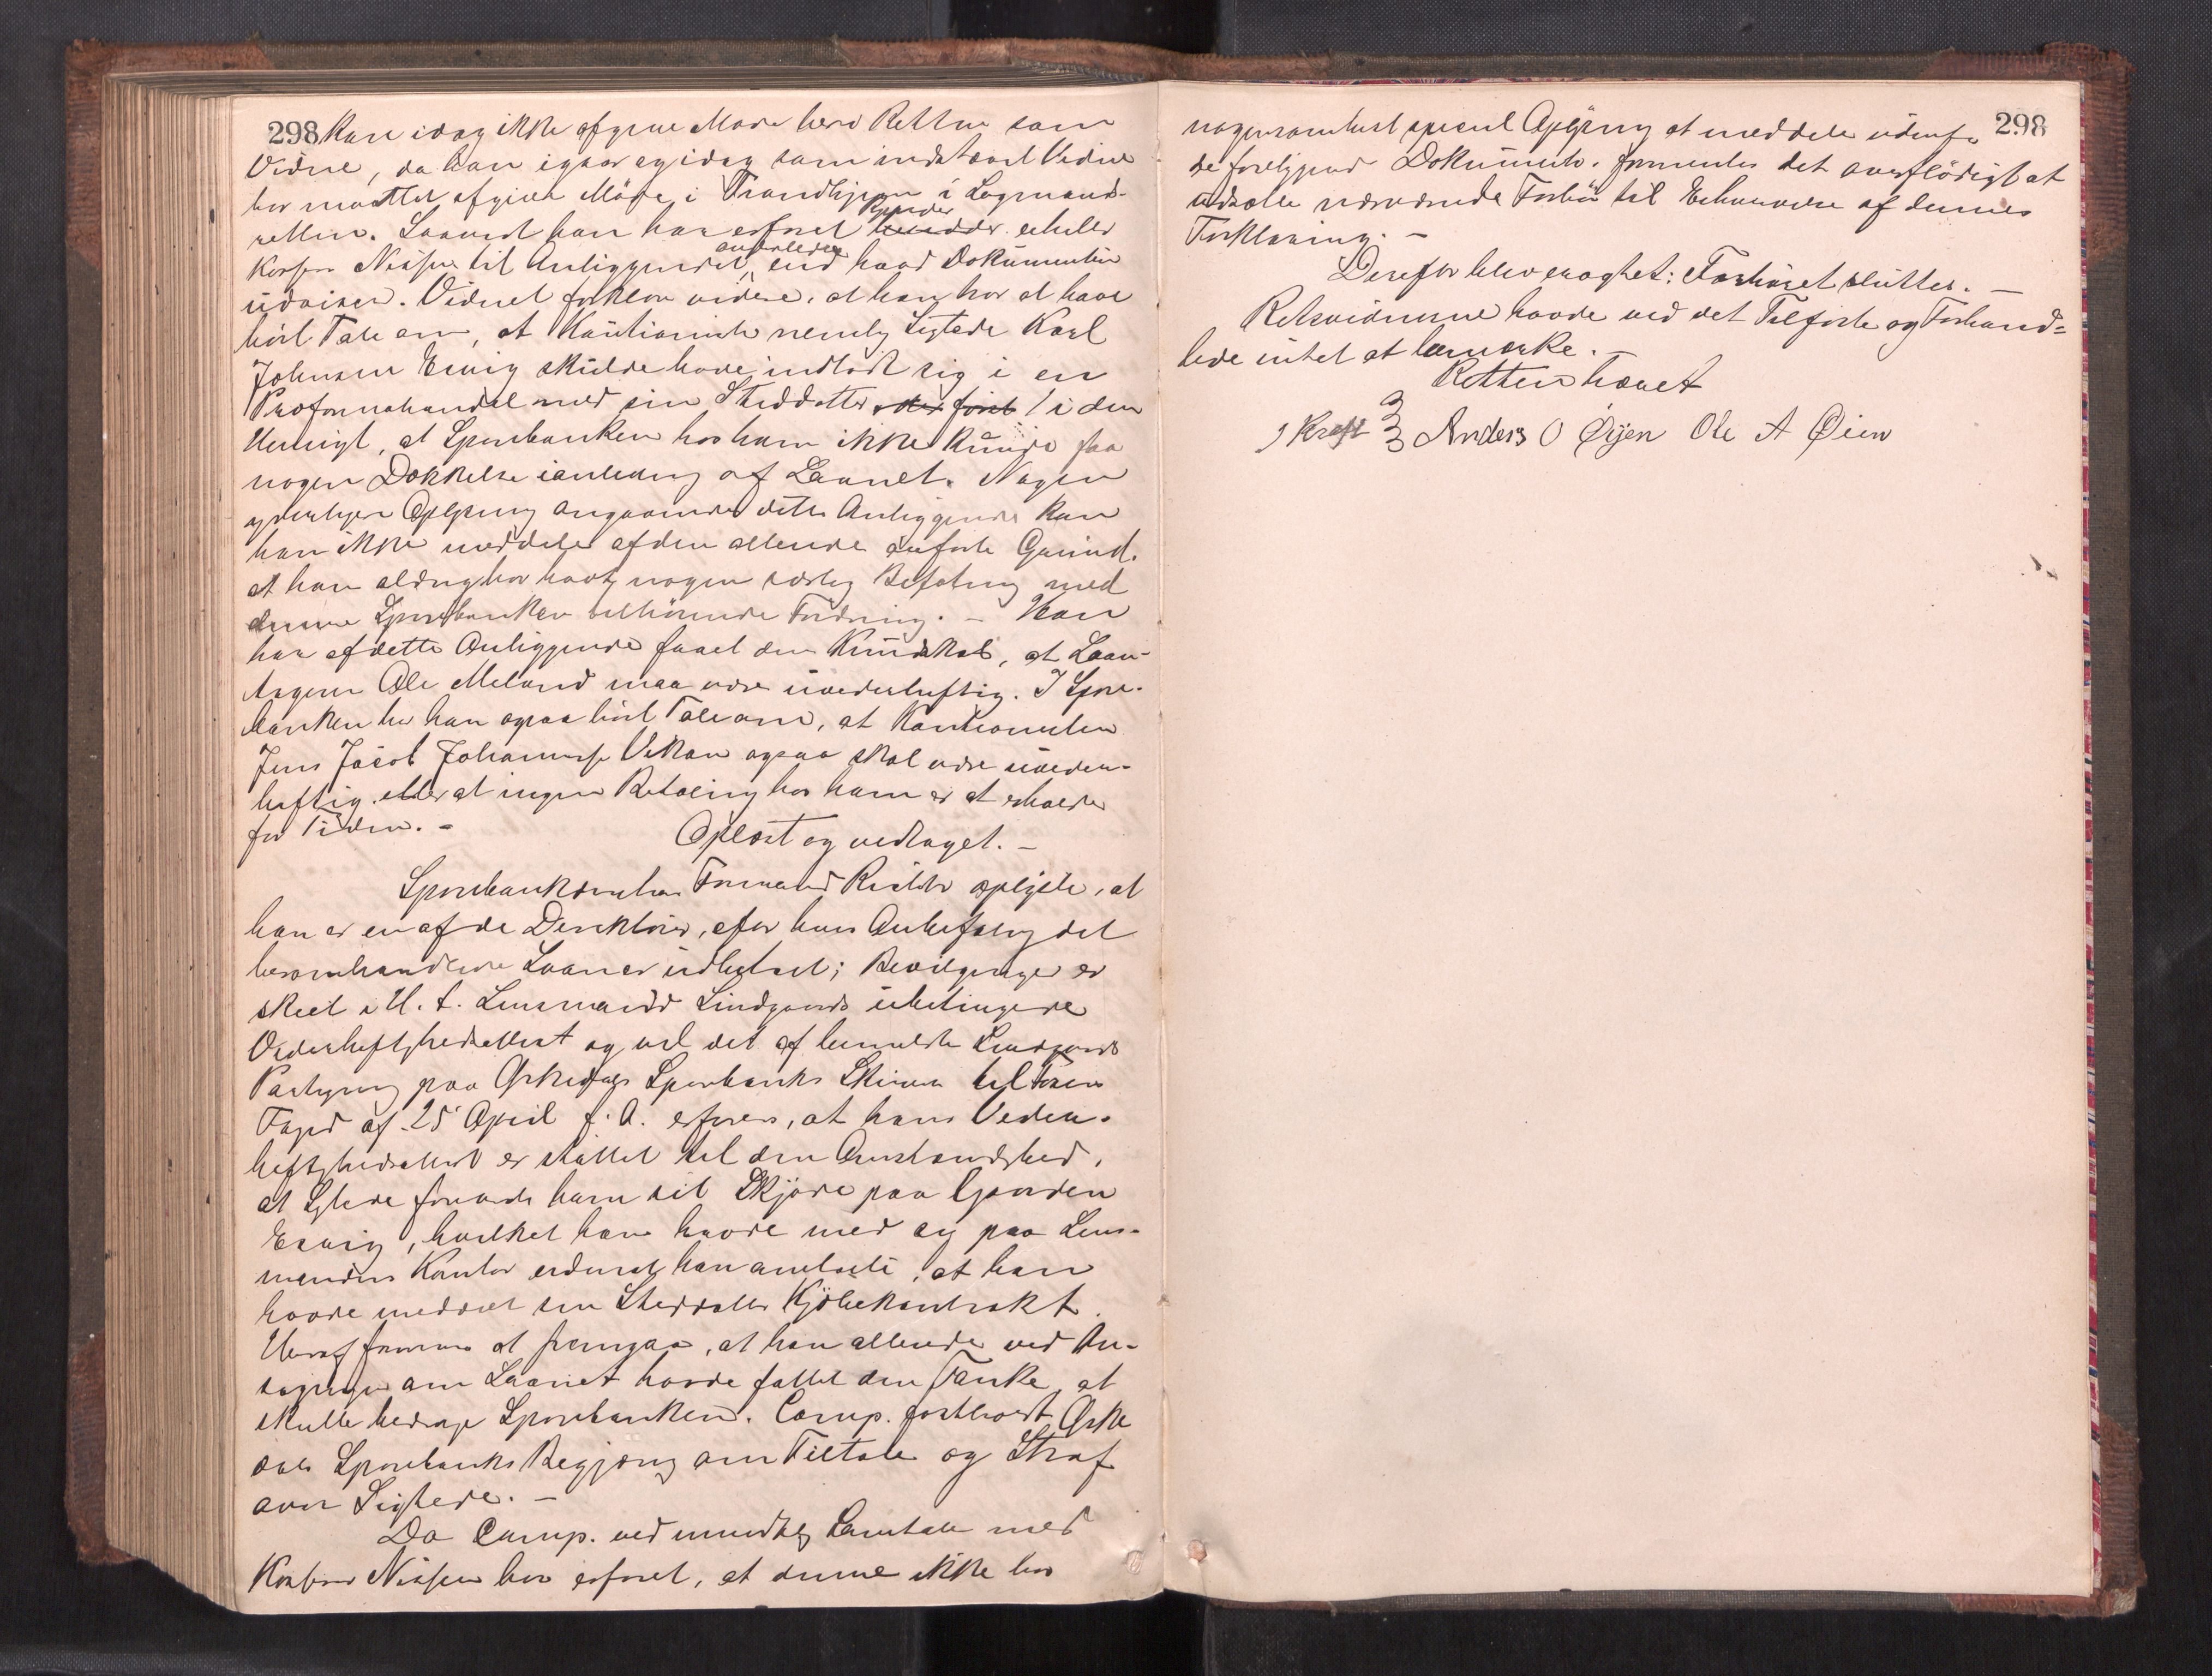 298 Kan idag ikke afgive Møde herv Retten som
Vidne, da han igaar og idag som indstævnt Vidne
har maattet afgive Møde i Trondhjem i Lagmands-
retten. Saavidt han har erfaret kjender enkelte
Kasserer Nissen til Anliggendet, anderledes end hvad Dokumenterne
udviser. Vidnet forklarer videre, at han har at have
hört Tale om, at Kautionisten nemlig Sigtede Karl
Johnsen Esvig skulde have indladt sig i en
Proformahandel med sin Steddatter i den
Hensigt, at Sparebanken hos ham ikke kunde faa
nogen Dækkelse ianledning af Laanet. Nogen
yderligere Oplysning angaaende dette Anliggende kan
han ikke meddele af den allerede anførte Grund,
at han aldrig har havt nogen særlig Befatning med
denne Sparebanken tilhörende Fordring. - Han
har af dette Anliggende faaet den Kundskab, at Laan-
tageren Ole Meland maa være uvederheftig. I Spare-
banken har han ogsaa hört Tale om, at Kautionisten
Jens Jacob Johannesen Vikan ogsaa skal være uveder-
heftig eller at ingen Betaling hos ham er at erholde
for Tiden. -
Oplæst og vedtaget. -
Sparebankens Formand oplyste, at
han er en af de Direktörer, efter hvis Anbefaling det
heromhandlede Laan er udbetalt; Bevilgningen er
skeet i H. t. Lensmand Lindgaards ubetingede
Vederheftighedsattest og ved det af bemeldte Lindgaards
Paategning paa Orkedals Sparebanks Skrivelse til
Foged af 25 April f. A. erfares, at hans Veder-
heftighedsattest er støttet til den Omstændighed,
at Sigtede foreviste ham sit Skjøde paa Gaarden
Esvig, hvilket han havde med sig paa Lens-
mandens Kontor endnu han anførte, at han
havde meddelt sin Steddatter Kjöbekontrakt.
Heraf formenes at fremgaa, at han allerede ved An-
søgningen om Laanet havde fattet den Tanke at
skulle bedrage Sparebanken. Comp. fastholdt Orke
dals Sparebanks Begjæring om Tiltale og Straf
over Sigtede. -
Da Comp. ved mundtlig Samtale med
Kasserer Nissen har erfaret, at denne ikke har
298
nogensomhelst speciel Oplysning at meddele udenfor
de foreliggende Dokumenter, formentes det overflödigt at
udsætte nærværende Forhör til Erhvervelse af dennes
Forklaring. -
Derefter blev eragtet: Forhöret sluttes. -
Retsvidnerne havde ved det Tilførte og Forhand-
lede intet at bemærke. -
Retten hævet
J Kreft Anders O Øyen Ole A Øien